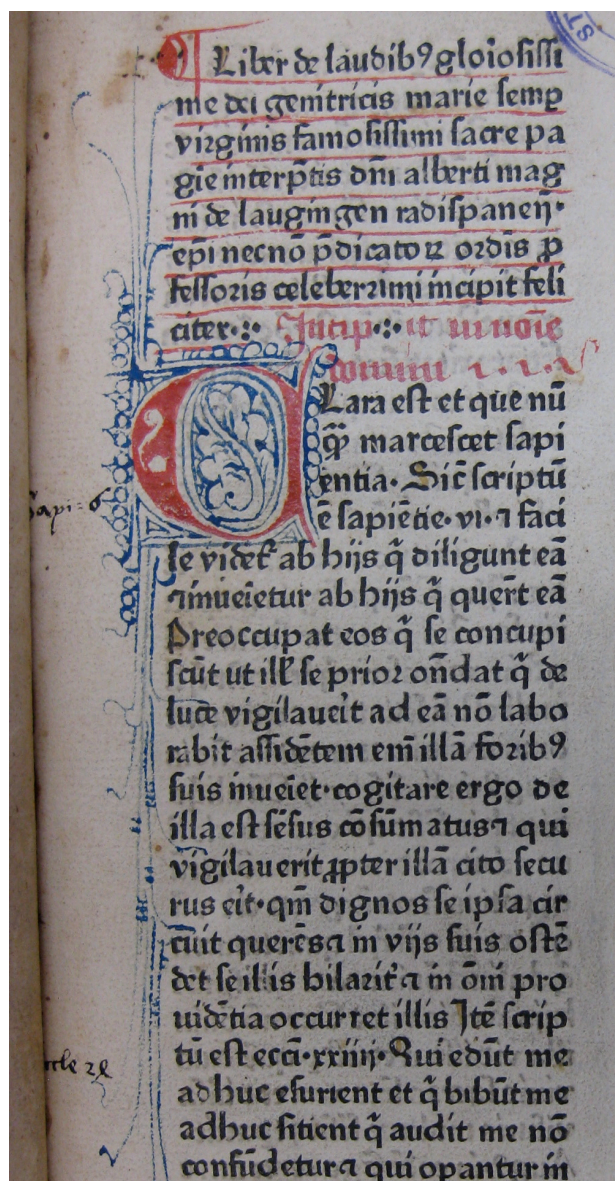 Liber de laudibꝰ gloꝛiosissi
me dei genitricis marie semꝑ
virginis famosissimi sacre pa
gīe interp̄tis dn̄i alberti mag
ni de laugingen radispaneñ·
ep̄i necnō p̄dicatoꝝ ordīs ꝓ
fessoris celeberrimi incipit feli
citer·:· Incip·:·it in noīe
domini
CLara est et que nū
q̄ꝫ marcescet sapi
entia· Sic̄ scriptū
ē sapiētie· vi· ⁊ faci
le videt᷑ ab hijs q̄ diligunt eā
⁊inueīetur ab hijs q̄ quer̄t eā
Preoccupat eos q̄ se concupi
scūt ut ill᷑ se prioꝛ on̄dat q̄ de
luce vigilaue᷑it ad eā nō labo
rabit assidētem em̄ illā foribꝰ
suis inueīet·cogitare ergo de
illa est sēsus cōsūmatus⁊ qui
vigilauerit ꝓpter illā cito secu
rus e᷑it·qm̄ dignos se ipsa cir
cūit querēs⁊ in vijs suis ostē
det se illis hilarit᷑ ⁊ in om̄i pro
uidētia occurret illis Itē scrip
tū est ecc̄i·xxiiij· Qui edūt me
adhuc esurient et q̄ bibūt me
adhuc sitient q̄ audit me nō
confūdetur⁊ qui opantur in